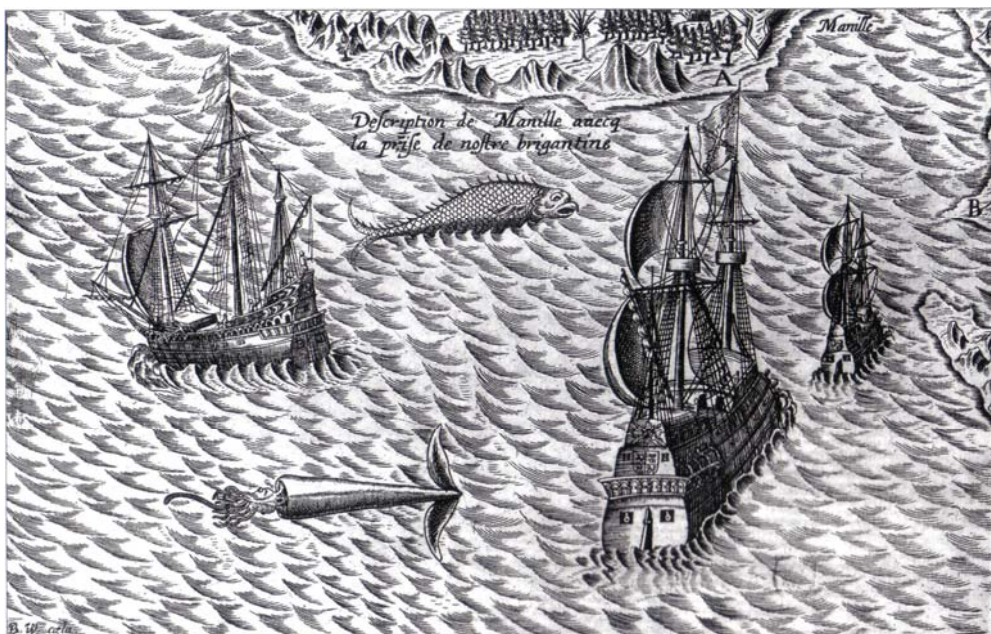 Manille
A
Description de Manille auecq
la prise de nostre brigantine
B
B. W.